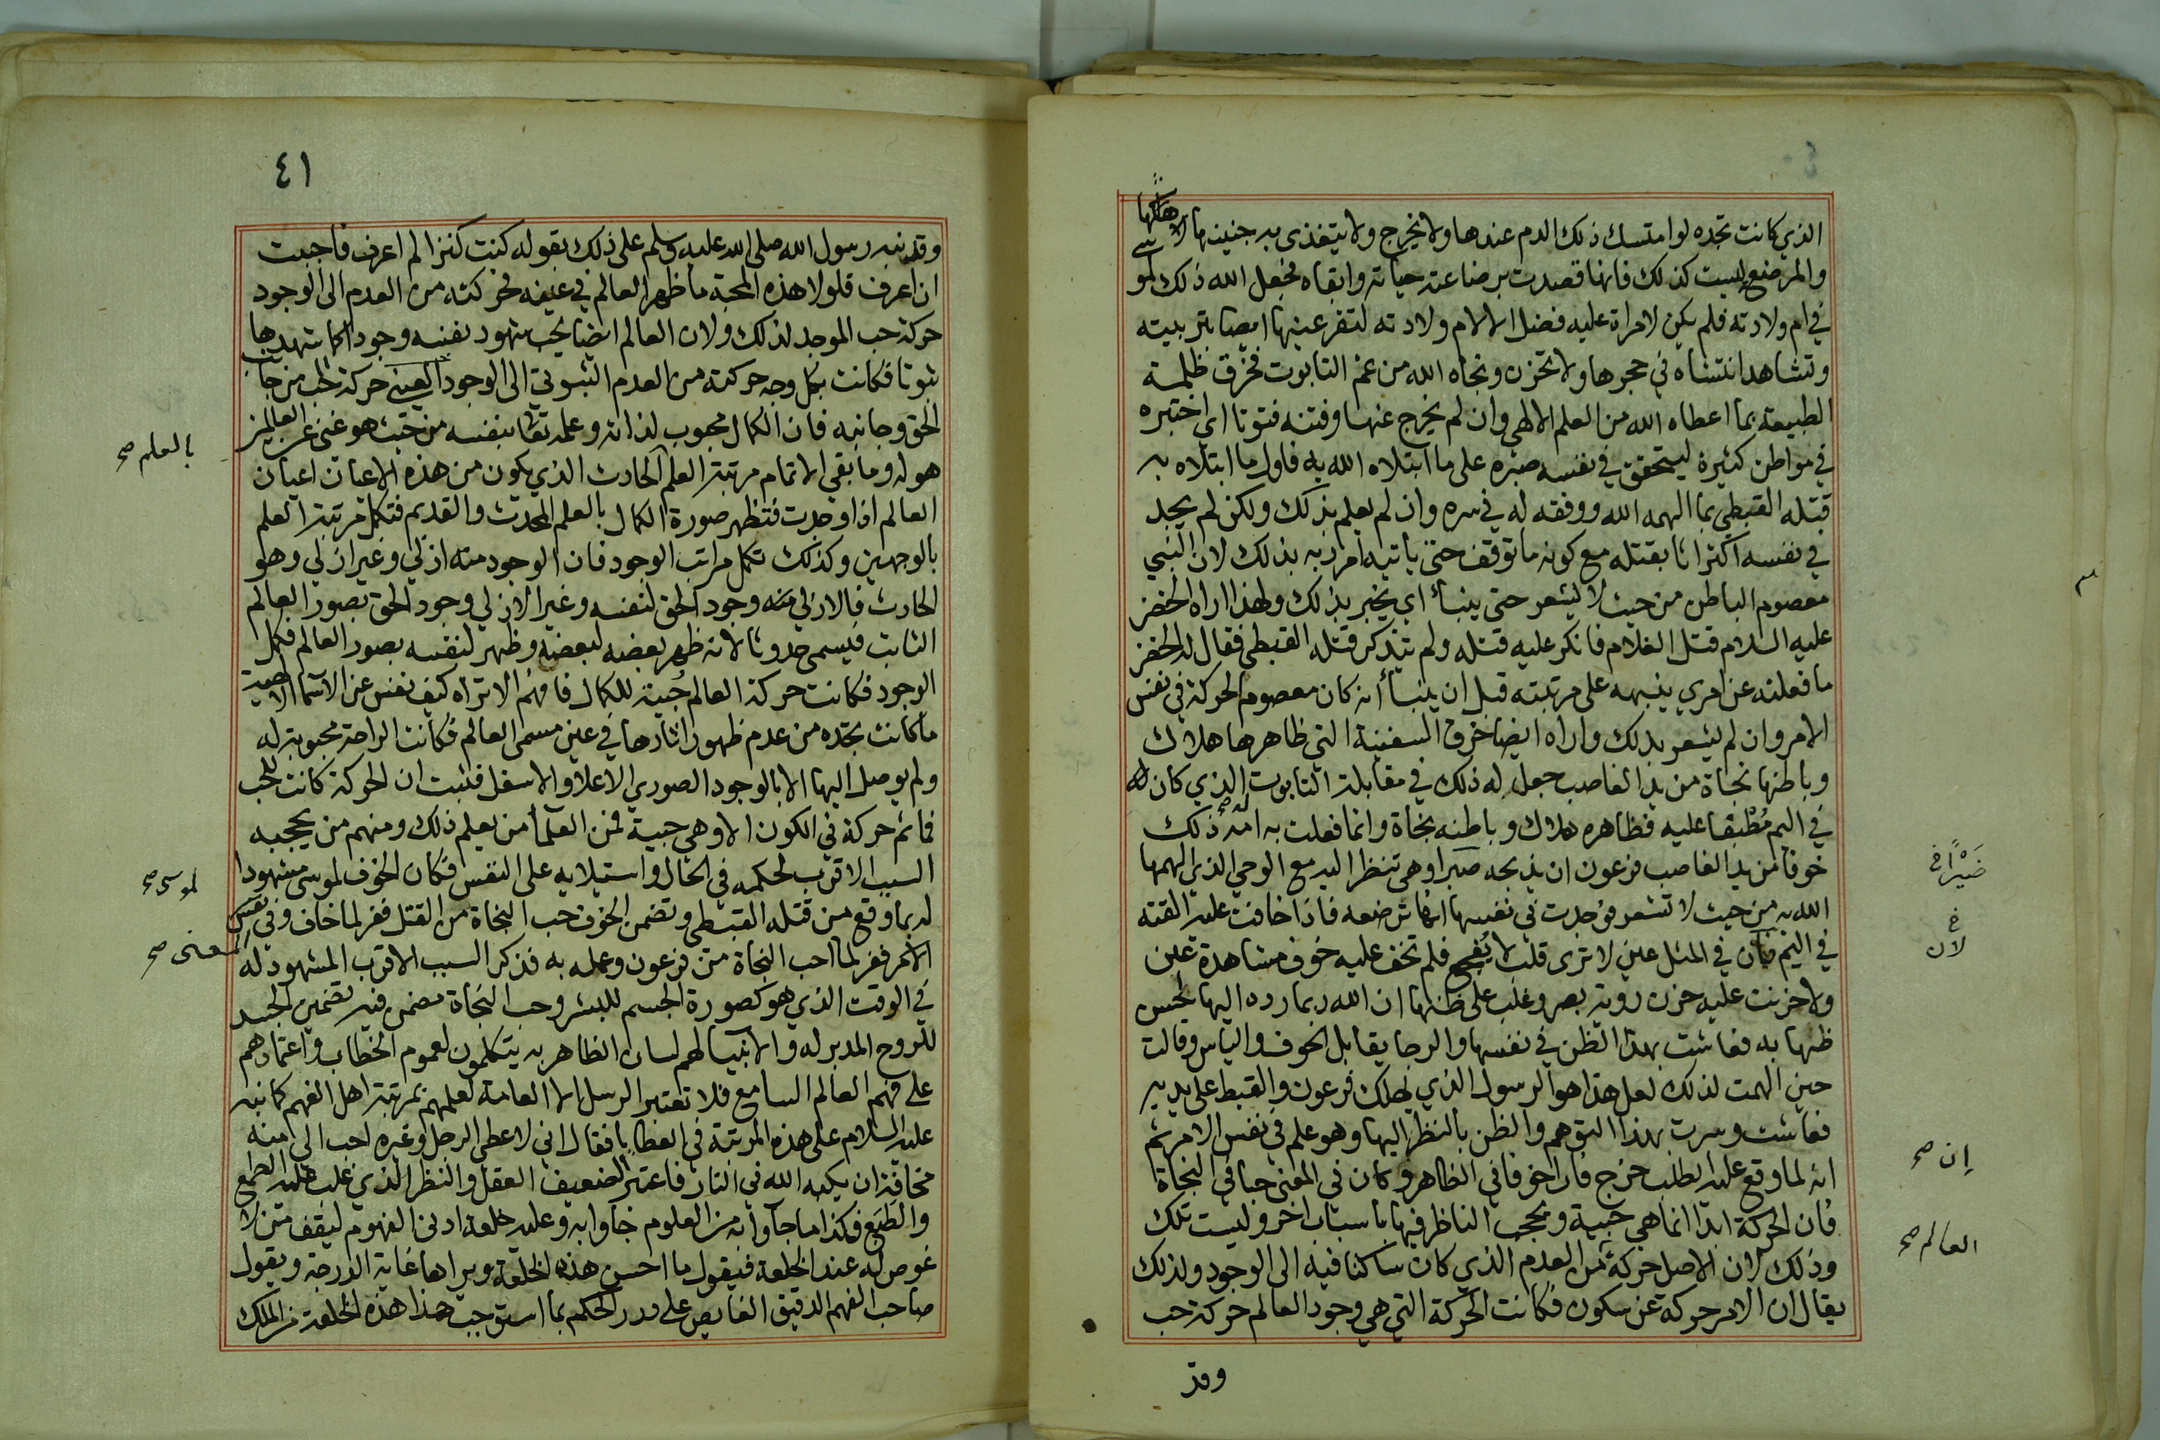 الذي كانت تجده لو امتسك ذلك الدم عندها ولا يخرج ولا يتغذى به جنينها لاهلكها
والمرضع ليست كذلك فانها قصدت برضاعته حياته وابقاه فجعل الله ذلك لموسى
في ام ولادته فلم يكن لامراة عليه فضل الا لام ولادته لتقر عينها ايضا بتربيته
وتشاهد انتشاه في حجرها ولا تحزن ونجاه الله من غم التابوت فخرق ظلمة
الطبيعة بما اعطاه الله من العلم الالهي وان لم يخرج عنها وفتنه فتونا اي اختبره
في مواطن كثيرة ليتحقق في نفسه صبره على ما ابتلاه الله به فاول ما ابتلاه به
قتله القبطي بما الهمه الله ووفقه له في سره وان لم يعلم بذلك ولكن لم يجد
في نفسه اكتراثا بقتله مع كونه ما توقف حتى ياتيه امر ربه بذلك لان النبي
معصوم الباطن من حيث لا يشعر حتى ينبأ اي يخبر بذلك ولهذا اراه الخضر
عليه السلام قتل الغلام فانكر عليه قتله ولم يتذكر قتله القبطي فقال له الخضر
ما فعلته عن امري ينبهه على مرتبته قبل ان ينبأ انه كان معصوم الحركة في نفس
الامر وان لم يشعر بذلك واراه ايضا خرق السفينة التي ظاهرها هلاك
وباطنها نجاة من يد الغاصب جعل له ذلك في مقابلة التابوت الذي كان له
في اليم مطبقا عليه فظاهره هلاك وباطنه نجاة وانما فعلت به امه ذلك
خوفا من يد الغاصب فرعون ان يذبحه صبرا وهي تنظر اليه مع الوحي الذي الهمها
الله به من حيث لا تشعر فوجدت في نفسها انها ترضعه فاذا خافت عليه القته
في اليم فان في المثل عين لا ترى قلب لا يفجع فلم تخف عليه خوف مشاهدة عين
ولا حزنت عليه حزن روية بصر وغلب على ظنها ان الله ربما رده اليها لحسن
ظنها به فعاشت بهذا الظن في نفسها والرجا يقابل الخوف والياس وقالت
حين الهمت لذلك لعل هذا هو الرسول الذي يهلك فرعون والقبط على يديه
فعاشت وسرت بهذا التوهم والظن بالنظر اليها وهو علم في نفس الامر ثم
انه لما وقع عليه الطلب خرج فارا خوفا في الظاهر وكان في المعنى حبا في النجاة
فان الحركة ابدا انما هي حبية ويحجب الناظر فيها باسباب اخر وليست تلك
وذلك لان الاصل حركة من العدم الذي كان ساكنا فيه الى الوجود ولذلك
يقال ان الامر حركة عن سكون فكانت الحركة التي هي وجود العالم حركة حب
وقد
لان
إن صح
العالم صح
٤١
وقد نبه رسول الله صلى الله عليه وسلم على ذلك بقوله كنت كنزا لم اعرف فاحببت
ان اعرف فلولا هذه المحبة ما ظهر العالم في عينه فحركته من العدم الى الوجود
حركة حب الموجد لذلك ولان العالم ايضا يحب شهود نفسه وجودا كما شهدها
ثبوتا فكانت بكل وجه حركته من العدم الثبوتي الى الوجود العيني حركة حب من جانب
الحق وجانبه فان الكمال محبوب لذاته وعلمه تعالى بنفسه من حيث هو غني عن العالمين
هو له وما بقي الا تمام مرتبة العلم الحادث الذي يكون من هذه الاعيان اعيان
العالم اذا وجدت فتظهر صورة الكمال بالعلم المحدث والقديم فتكمل مرتبة العلم
بالوجهين وكذلك تكمل مراتب الوجود فان الوجود منه ازلي وغير ازلي وهو
الحادث فالازلي منه وجود الحق لنفسه وغير الازلي وجود الحق بصور العالم
الثابت فيسمى حدوثا لانه ظهر بعضه لبعضه وظهر لنفسه بصور العالم فكمل
الوجود فكانت حركة العالم حبية للكمال فافهم الا تراه كيف نفس عن الاسما الالهية
ما كانت تجده من عدم ظهور اثارها في عين مسمى العالم فكانت الراحة محبوبة له
ولم يوصل اليها الا بالوجود الصوري الاعلا والاسفل فثبت ان الحركة كانت للحب
فما ثم حركة في الكون الا وهي حبية فمن العلمأ من يعلم ذلك ومنهم من يحجبه
السبب الاقرب لحكمه في الحال واستيلايه على النفس فكان الخوف لموسى مشهودا
له بما وقع من قتله القبطي وتضمن الخوف حب النجاة من القتل ففر لما خاف وفي نفس
الامر ففر لما احب النجاة من فرعون وعمله به فذكر السبب الاقرب المشهود له
في الوقت الذي هو كصورة الجسم للبشر وحب النجاة مضمن فيه تضمين الجسد
للروح المدبر له والانبيا لهم لسان الظاهر به يتكلمون لعموم الخطاب واعتمادهم
على فهم العالم السامع فلا تعتبر الرسل الا العامة لعلمهم بمرتبة اهل الفهم كما نبه
عليه السلام على هذه المرتبة في العطايا فقال اني لاعطي الرجل وغيره احب الي منه
مخافة ان يكبه الله في النار فاعتبر الضعيف العقل والنظر الذي غلب عليه الطمع
والطبع فكذا ما جاوا به من العلوم جاوا به وعليه خلعة ادنى الفهوم ليقف من لا
غوص له عند الخلعة فيقول ما احسن هذه الخلعة ويراها غاية الدرجة ويقول
صاحب الفهم الدقيق الغايص على درر الحكم بما استوجب هذا هذه الخلعة من الملك
بالعلم صح
لموسى صح
المعنى صح